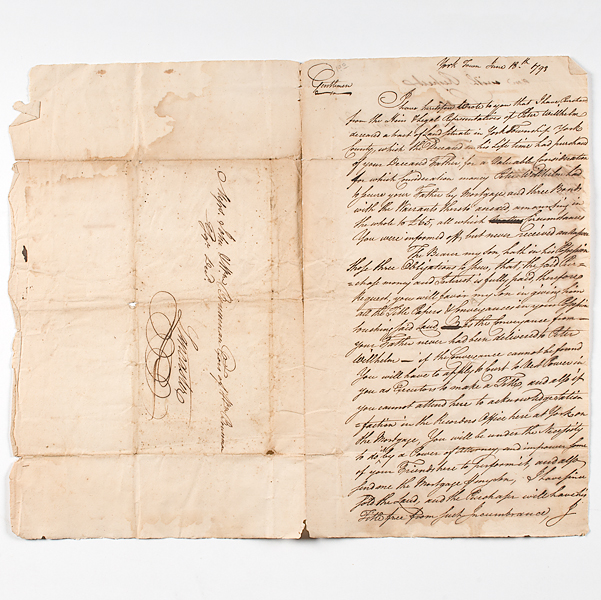 York Town June 18th. 1793
Gentlemen
I have heretofore wrote to you that I have Purchased
from the Heirs & legal Representatives of Peter Wellhelm
deceased a tract of land situate in York Township York
County, which the Deceased in his life time had purchased
of your Deceased Father for a Valuable Consideration
for which Consideration money Peter Wellhelm had
to secure your Father by Mortgage and three Bonds
with the Warrants thereto annexed amounting in
the whole to £ all which Circumstances
You were informed off, but never received an answer
The Bearer my Son, hath in his Possession
those three Obligations & shew, that the said Pur=
=chase money and Interest is fully paid, therefore
Request, you will favour my Son in giving him
all the Title Papers & Conveyances in your Possession
touching said Land as the Conveyance from
your Father never had been delivered to Peter
Wellhelm — if the Conveyance cannot be found
You will have to apply to Court to Vest Power in
you as Executors to make a Title, and also if
you cannot attend here to acknowledge satis=
=faction in the Recorders Office here at York on
the Mortgage, You will be under the Necessity
to do it by a Power of Attorney and impower some
of your Friends here to perform it, and also
send me the Mortgage if maybe, I have since
sold the Land, and the Purchaser will have his
Title free from such Incumbrance, I
Messrs. John & Wm. Bowman Exrs of Wm. Bowman